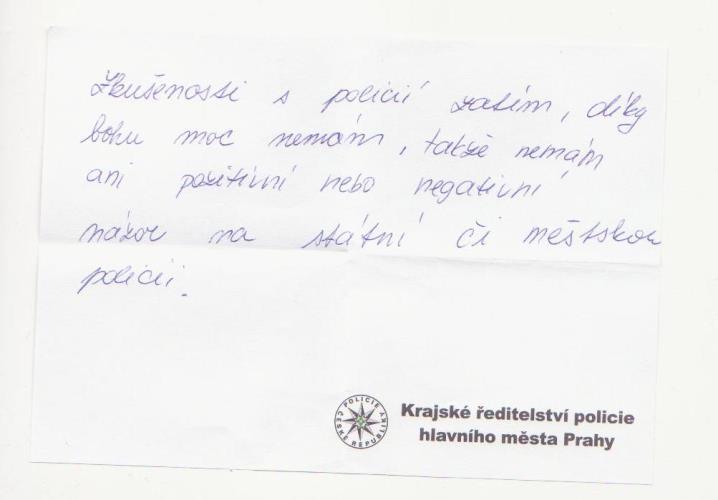 Zkušenosti s policií zatím, díky
bohu moc nemám, takže nemám
ani pozitivní nebo negativní
názor na státní či městskou
policii.
POLICIE ČESKÉ REPUBLIKY
Krajské ředitelství policie
hlavního města Prahy